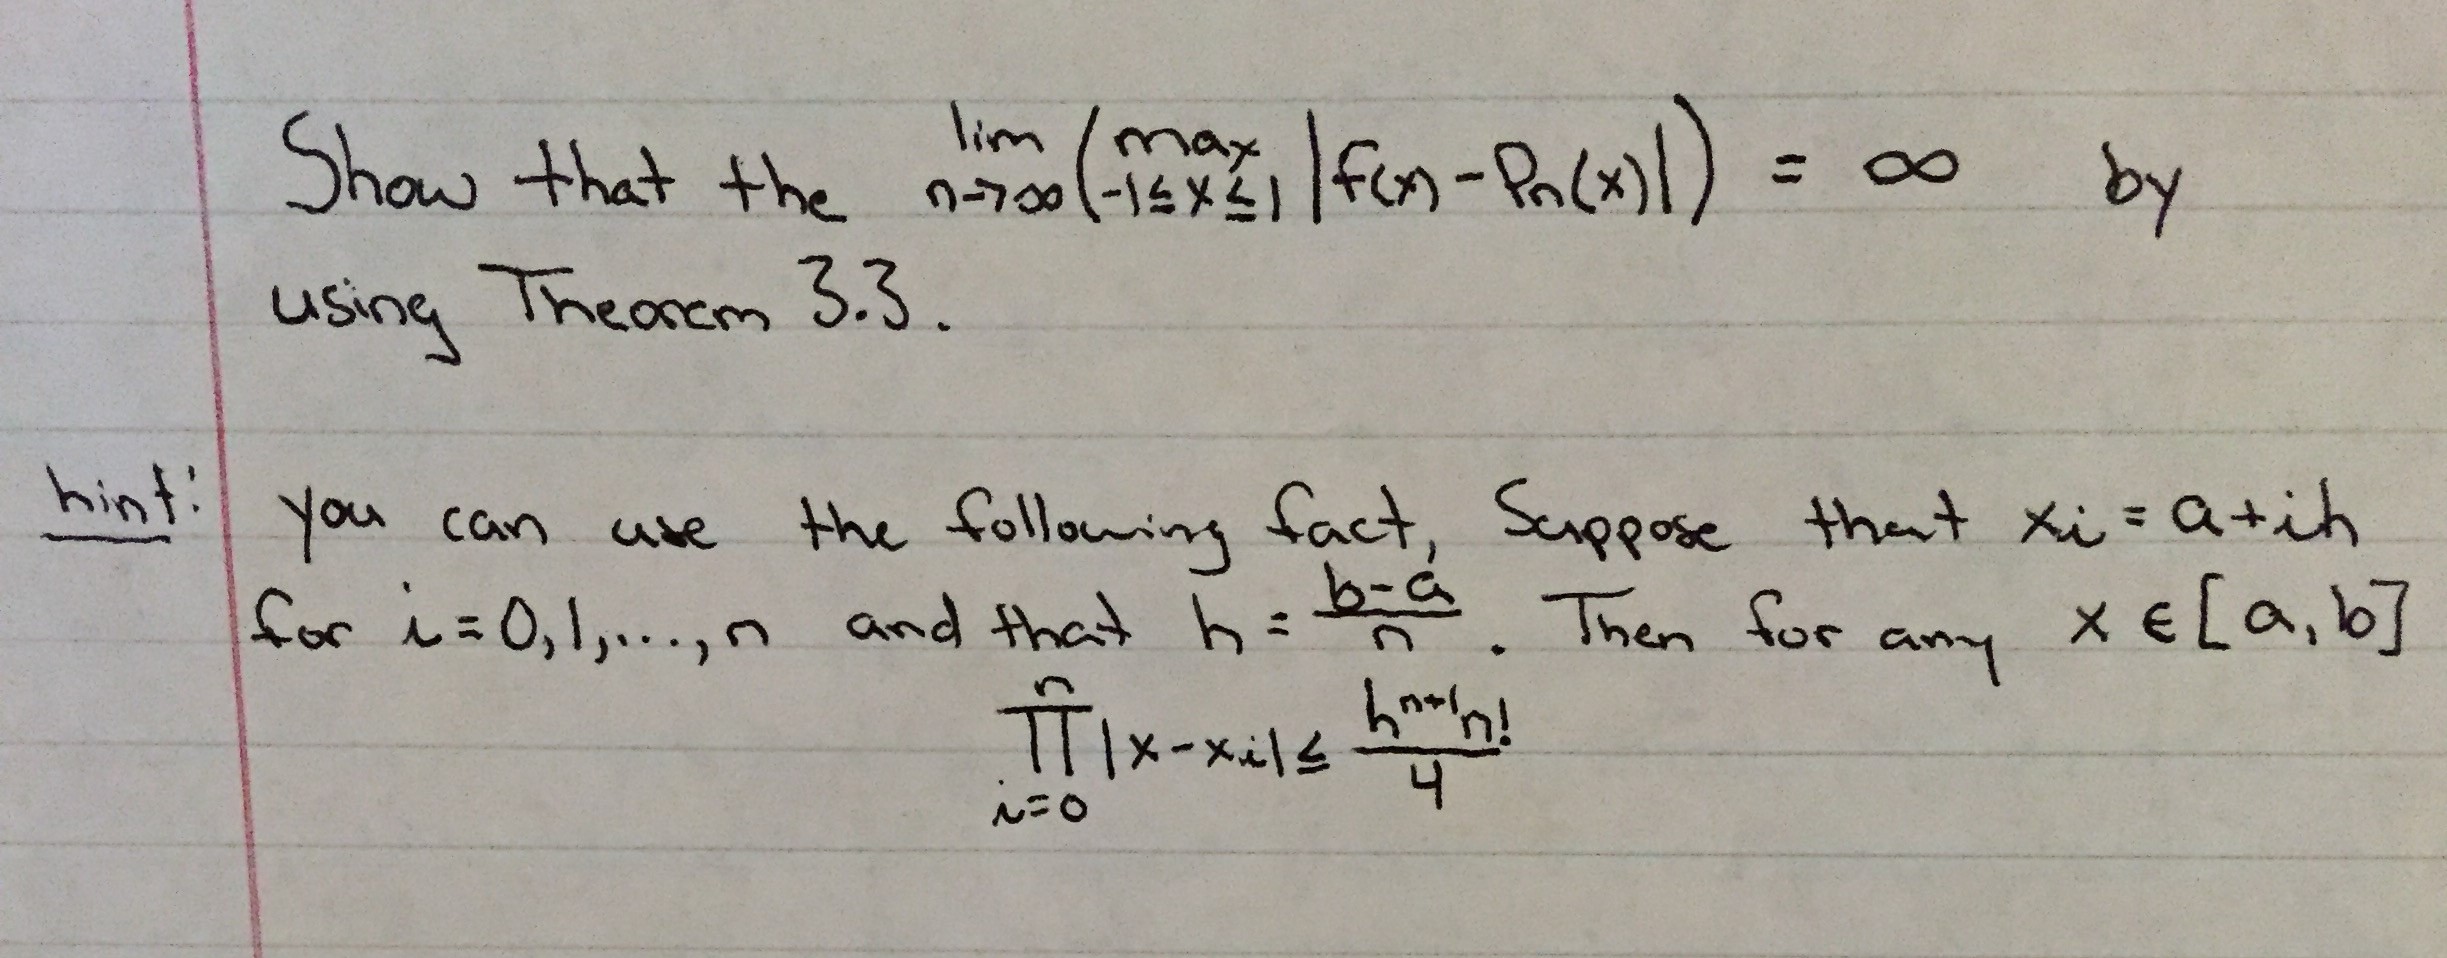 Show that the lim n→∞ (max -1≤x≤1 |f(x) - Pn(x)|) = ∞ by
using Theorem 3.3.
hint: you can use the following fact, Suppose that xi = a+ih
for i=0,1,...,n and that h = b-a/n. Then for any x ∈ [a,b]
n ∏ i=0 |x-xi| ≤ h^n+1 n!/4